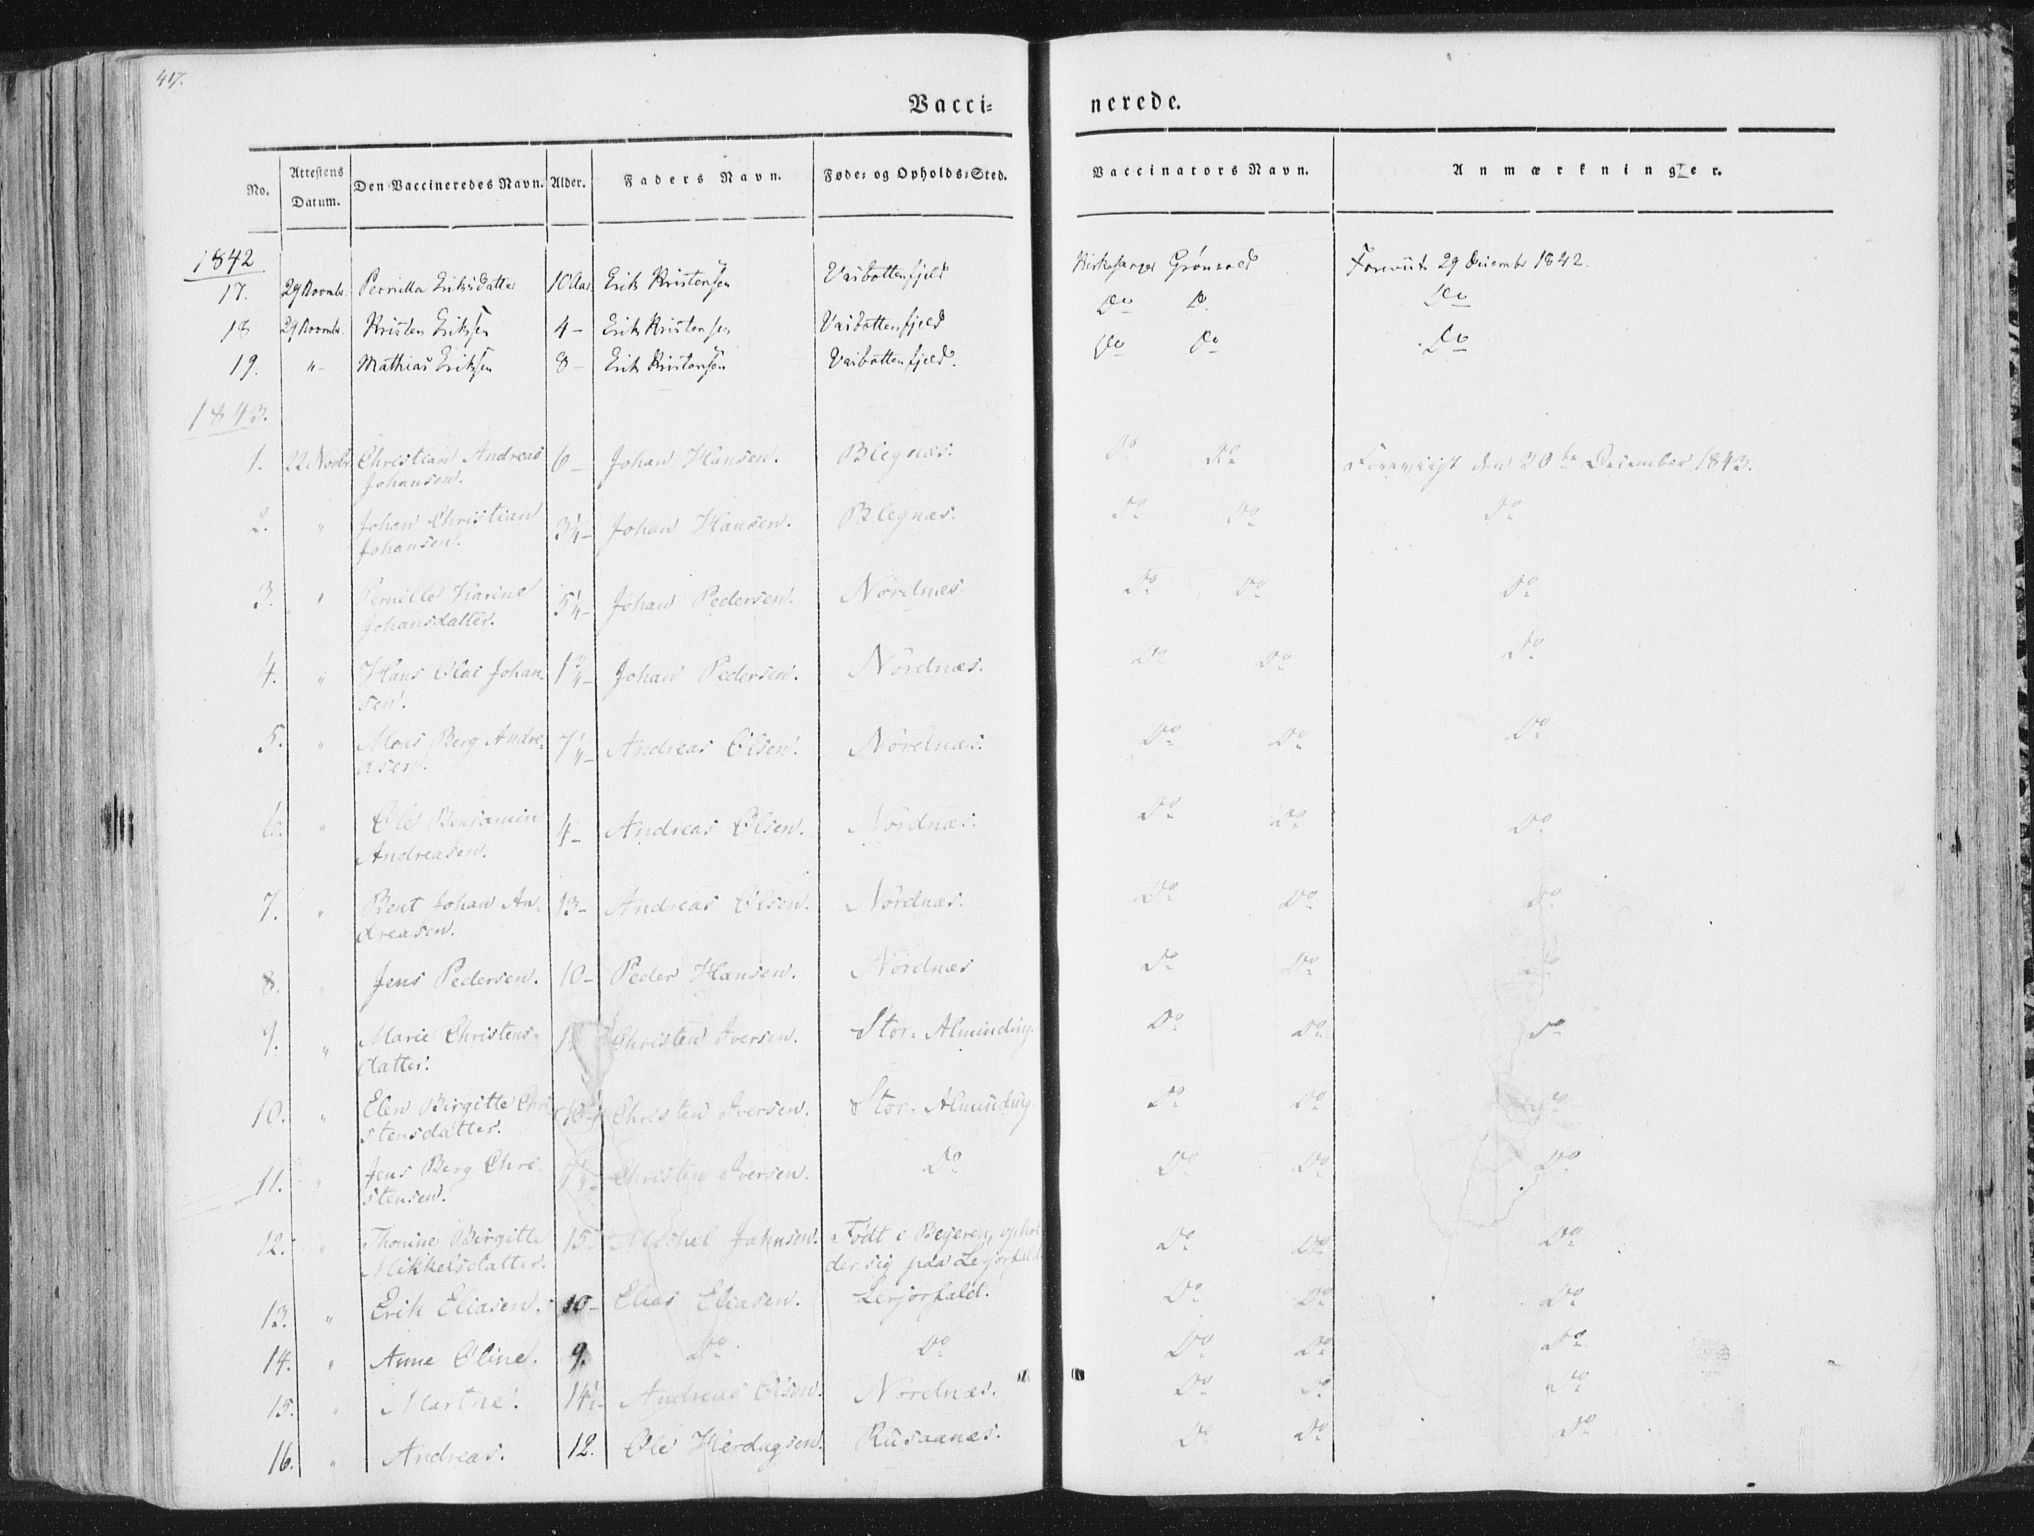 417.
Vacci= nerede.
No. Attestens Datum. Den Vaccineredes Navn. Alder. Faders Navn. Føde= og Opholds=Sted. Vaccinators Navn. Anmærkninger.
1842
17. 29 Novmbr. Pernilla Eriksdatter 10 Aar Erik Kristensen Vasbottenfjeld Kirkesanger Grönvold Foreviist 29 December 1842.
18 29 Novmbr. Kristen Eriksen 4 – Erik Kristensen Vasbottenfjeld Do Do Do
19. "– Mathias Eriksen 8 – Erik Kristensen Vasbottenfjeld. Do Do Do
1843.
1. 22 Novbr. Christian Andreas 6 – Johan Hansen. Blegnæs. Do Do Foreviist den 30te December 1843.
Johansen.
2. " Johan Christian 3¼– Johan Hansen. Blegnæs. Do Do Do
Johansen.
3. " Pernille Karine 5¼– Johan Pedersen. Nordnæs. Do Do Do
Johansdatter.
4. " Hans Olai Johan- 1¾– Johan Pedersen. Nordnæs. Do Do Do
sen.
5. " Mons Berg Andre- 7¼– Andreas Olsen. Nordnæs. Do Do Do
asen.
6. " Ole Benjamin 4– Andreas Olsen. Nordnæs. Do Do Do
Andreasen.
7. " Bent Johan An- 13– Andreas Olsen. Nordnæs. Do Do Do
dreasen.
8. " Jens Pedersen. 10– Peder Hansen. Nordnæs Do Do Do
9. " Marie Christens- Christen Iversen. Stor-Alminding. Do Do Do
datter.
10. " Elen Birgitte Chri- Christen Iversen. Stor-Alminding. Do Do Do
stensdatter.
11. " Jens Berg Chri- Christen Iversen. Do Do Do Do
stensen.
12. " Thonine Birgitte 15– Michel Jahnsen. Født i Bejeren, ophol-
Mikkelsdatter. der sig paa Lerjorfald. Do Do Do
13. " Erik Eliasen. 10– Elias Eliasen. Lerjorfald. Do Do Do
14. " Anne Oline. 9. Do Do Do Do Do
15. " Martne. 14½– Andreas Olsen. Nordnæs. Do Do Do
16. " Andreas. 12. Ole Herdugsen. Rusaanæs. Do Do Do